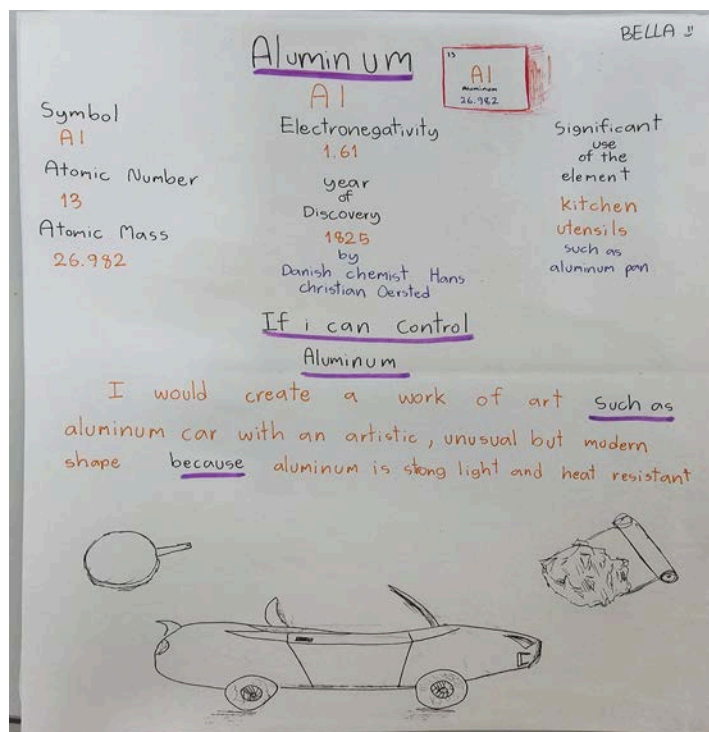 BELLA
Aluminum
13
Al
Aluminum
26.982
Al
Symbol
Al
Atomic Number
13
Atomic Mass
26.982
Electronegativity
1.61
year
of
Discovery
1825
by
Danish chemist Hans
christian Oersted
Significant
use
of the
element
kitchen
utensils
such as
aluminum pan
If i can control
Aluminum
I would create a work of art such as
aluminum car with an artistic, unusual but modern
shape because aluminum is stong light and heat resistant